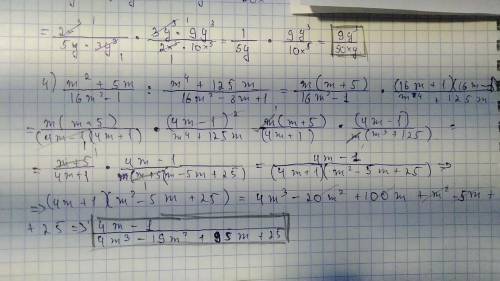 = 2x³/(5y · 3y³) · (3y³ · 9y³)/(2x³ · 10x⁵) = 1/5y · 9y³/10x⁵ =
4) (m² + 5m)/(16m² - 1) : (m⁴ + 125m)/(16m² - 8m + 1) = m(m+5)/(16m² - 1) ·
= m(m+5)/((4m-1)(4m+1)) · (4m-1)²/(m⁴ + 125m) = m(m+5)/(4m+1) · (4m-1)/(m(m³+125)) =
= (m+5)/(4m+1) · (4m-1)/((m+5)(m²-5m+25)) = (4m-1)/((4m+1)(m²-5m+25)) ⇒
⇒ (4m+1)(m²-5m+25) = 4m³ - 20m² + 100m + m² - 5m +
+ 25 ⇒ (4m-1)/(4m³ - 19m² + 95m + 25)